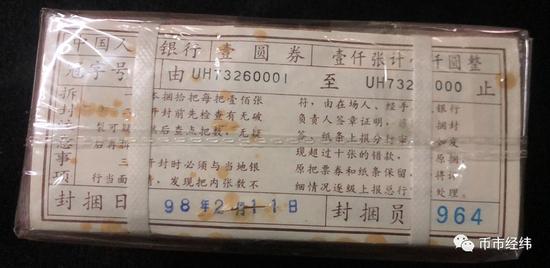 中国人 银行壹圆券 壹仟张计 仟圆整
冠字号 由 UH73260001 至 UH73 000 止
拆封 意事项
本捆拾把每把壹佰张
开封前先检查有无破
裂可疑 然后查点把数,无疑
后再拆
三 开封时必须与当地银
行当面 清,发现把内张数不
符,由在场人、经手 银行
负责人签章证明, 捆封
签、纸条上报分行审 如发
现超过十张的错款, 原捆
原把票券和纸条保留, 将计
细情况逐级上报总行 处理。
封捆日 98年2月11日 封捆员 964
币市经纬